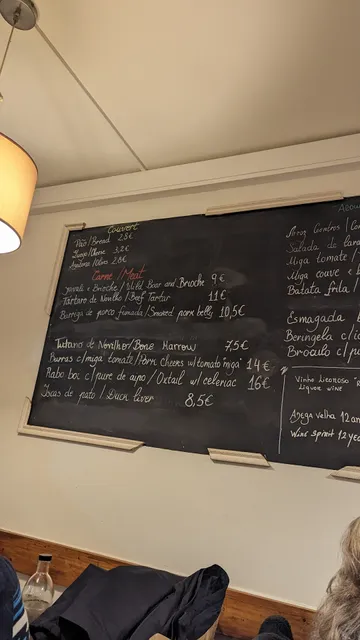 Couvert
Pão/Bread 2.5€
Queijo/Cheese 3,2€
Azeitona/Olives 2.8€
Carne/Meat
Javali e Brioche/Wild Boar and Brioche 9€
Tartaro de Novilho/Beef Tartar 11€
Barriga de porco fumada/Smoked pork belly 10,5€
Tutano de Novilho/Bone Marrow 7,5€
Burras c/miga tomate/Pork Cheeks w/tomato "miga" 14€
Rabo boi c/pure de aipo/Oxtail w/celeriac 16€
Iscas de pato/Duck liver 8,5€
Arroz Coentros/Cor
Salada de
Miga tomate/
Miga couve e
Batata frita/
Esmagada b
Beringela c/
Broculo c/
Vinho Licoroso "
Liquor wine
Adega velha 12 an
Wine Spirit 12 yea